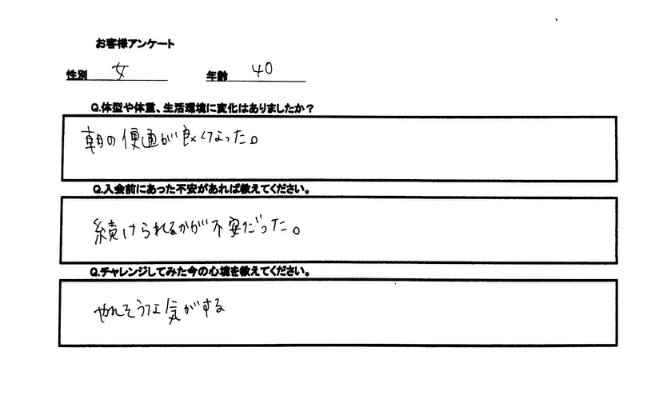 お客様アンケート
性別 女 年齢 40
Q.体型や体重、生活環境に変化はありましたか？
朝の便通が良くなった。
Q.入会前にあった不安があれば教えてください。
続けられるかが不安だった。
Q.チャレンジしてみた今の心境を教えてください。
やれそうな気がする